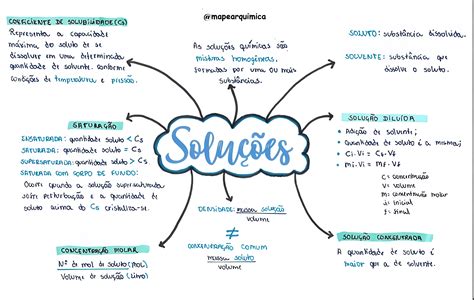 @mapearquimica
COEFICIENTE DE SOLUBILIDADE (Cs)
Representa a capacidade
máxima do soluto de se
dissolver em uma determinada
quantidade de solvente, conforme
condições de temperatura e pressão.
As soluções químicas são
misturas homogêneas,
formadas por uma ou mais
substâncias.
SOLUTO: substância dissolvida.
SOLVENTE: substância que
dissolve o soluto.
SATURAÇÃO
INSATURADA: quantidade soluto < Cs
SATURADA: quantidade soluto = Cs
SUPERSATURADA: quantidade soluto > Cs
SATURADA COM CORPO DE FUNDO:
Ocorre quando a solução supersaturada
sofre perturbação e a quantidade de
soluto acima do Cs cristaliza-se.
Soluções
SOLUÇÃO DILUÍDA
• Adição de solvente;
• Quantidade de soluto é a mesma;
• Ci.Vi = Cf.Vf
• mi.Vi = Mf.Vf
C = concentração
V = volume
m = concentração molar
i = inicial
f = final
DENSIDADE: massa solução
volume
≠
CONCENTRAÇÃO COMUM
massa soluto
volume
CONCENTRAÇÃO MOLAR
Nº de mol do soluto (mol)
Volume da solução (litro)
SOLUÇÃO CONCENTRADA
A quantidade de soluto é
maior que a de solvente.